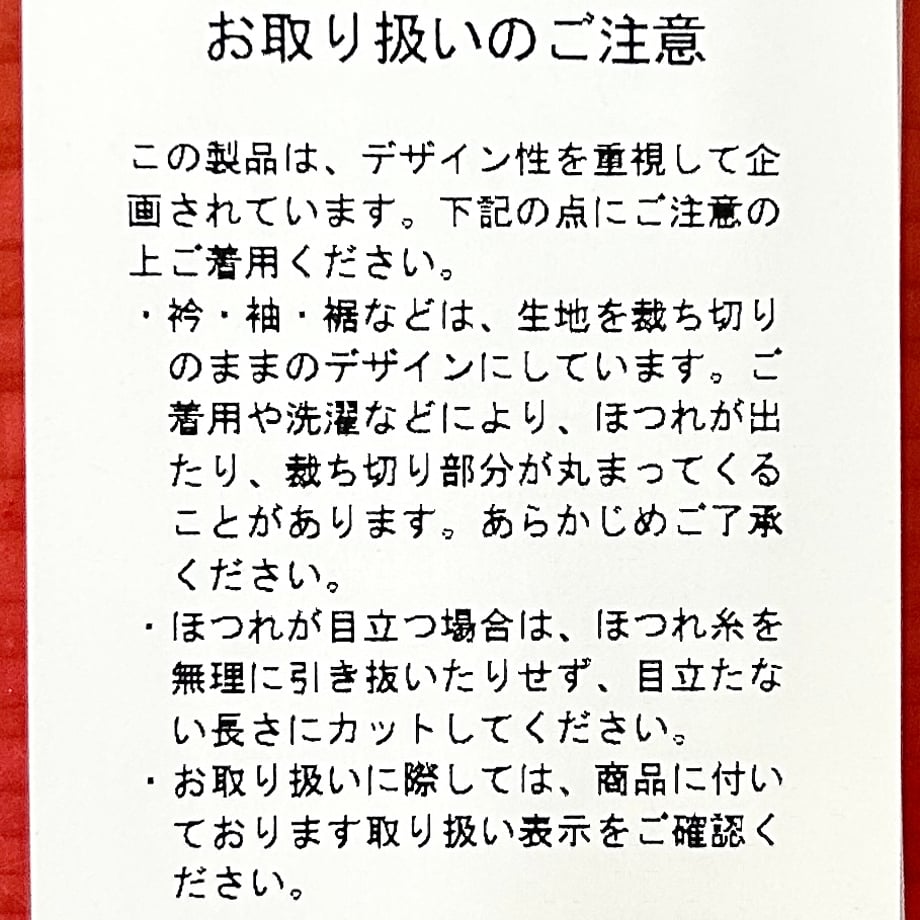 お取り扱いのご注意
この製品は、デザイン性を重視して企
画されています。下記の点にご注意の
上ご着用ください。
・衿・袖・裾などは、生地を裁ち切り
のままのデザインにしています。ご
着用や洗濯などにより、ほつれが出
たり、裁ち切り部分が丸まってくる
ことがあります。あらかじめご了承
ください。
・ほつれが目立つ場合は、ほつれ糸を
無理に引き抜いたりせず、目立たな
い長さにカットしてください。
・お取り扱いに際しては、商品に付い
ております取り扱い表示をご確認く
ださい。